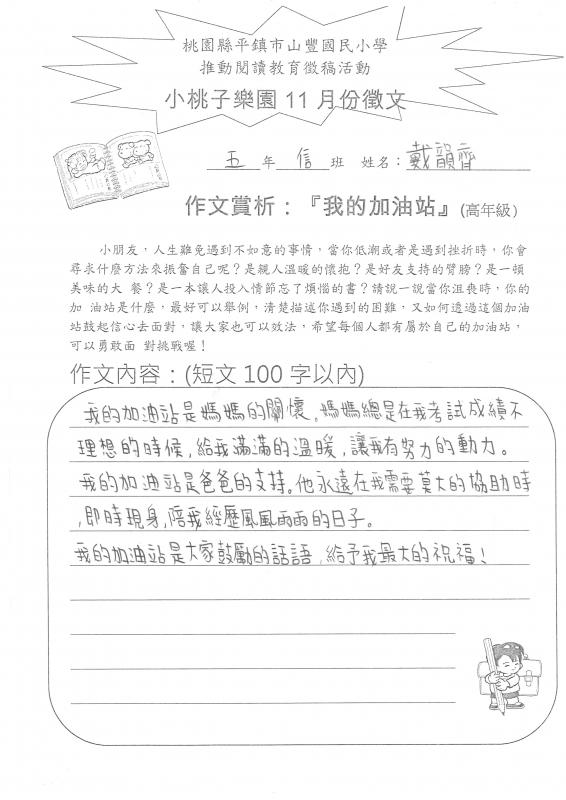 桃園縣平鎮市山豐國民小學
推動閱讀教育徵稿活動
小桃子樂園 11 月份徵文
五 年 信 班 姓名：戴韻齊
作文賞析：『我的加油站』(高年級)
小朋友，人生難免遇到不如意的事情，當你低潮或者是遇到挫折時，你會
尋求什麼方法來振奮自己呢？是親人溫暖的懷抱？是好友支持的臂膀？是一頓
美味的大 餐？是一本讓人投入情節忘了煩惱的書？請說一說當你沮喪時，你的
加 油站是什麼，最好可以舉例，清楚描述你遇到的困難，又如何透過這個加油
站鼓起信心去面對，讓大家也可以效法，希望每個人都有屬於自己的加油站，
可以勇敢面 對挑戰喔！
作文內容：(短文 100 字以內)
我的加油站是媽媽的關懷。媽媽總是在我考試成績不
理想的時候，給我滿滿的溫暖，讓我有努力的動力。
我的加油站是爸爸的支持。他永遠在我需要莫大的協助時
，即時現身，陪我經歷風風雨雨的日子。
我的加油站是大家鼓勵的話語，給予我最大的祝福！